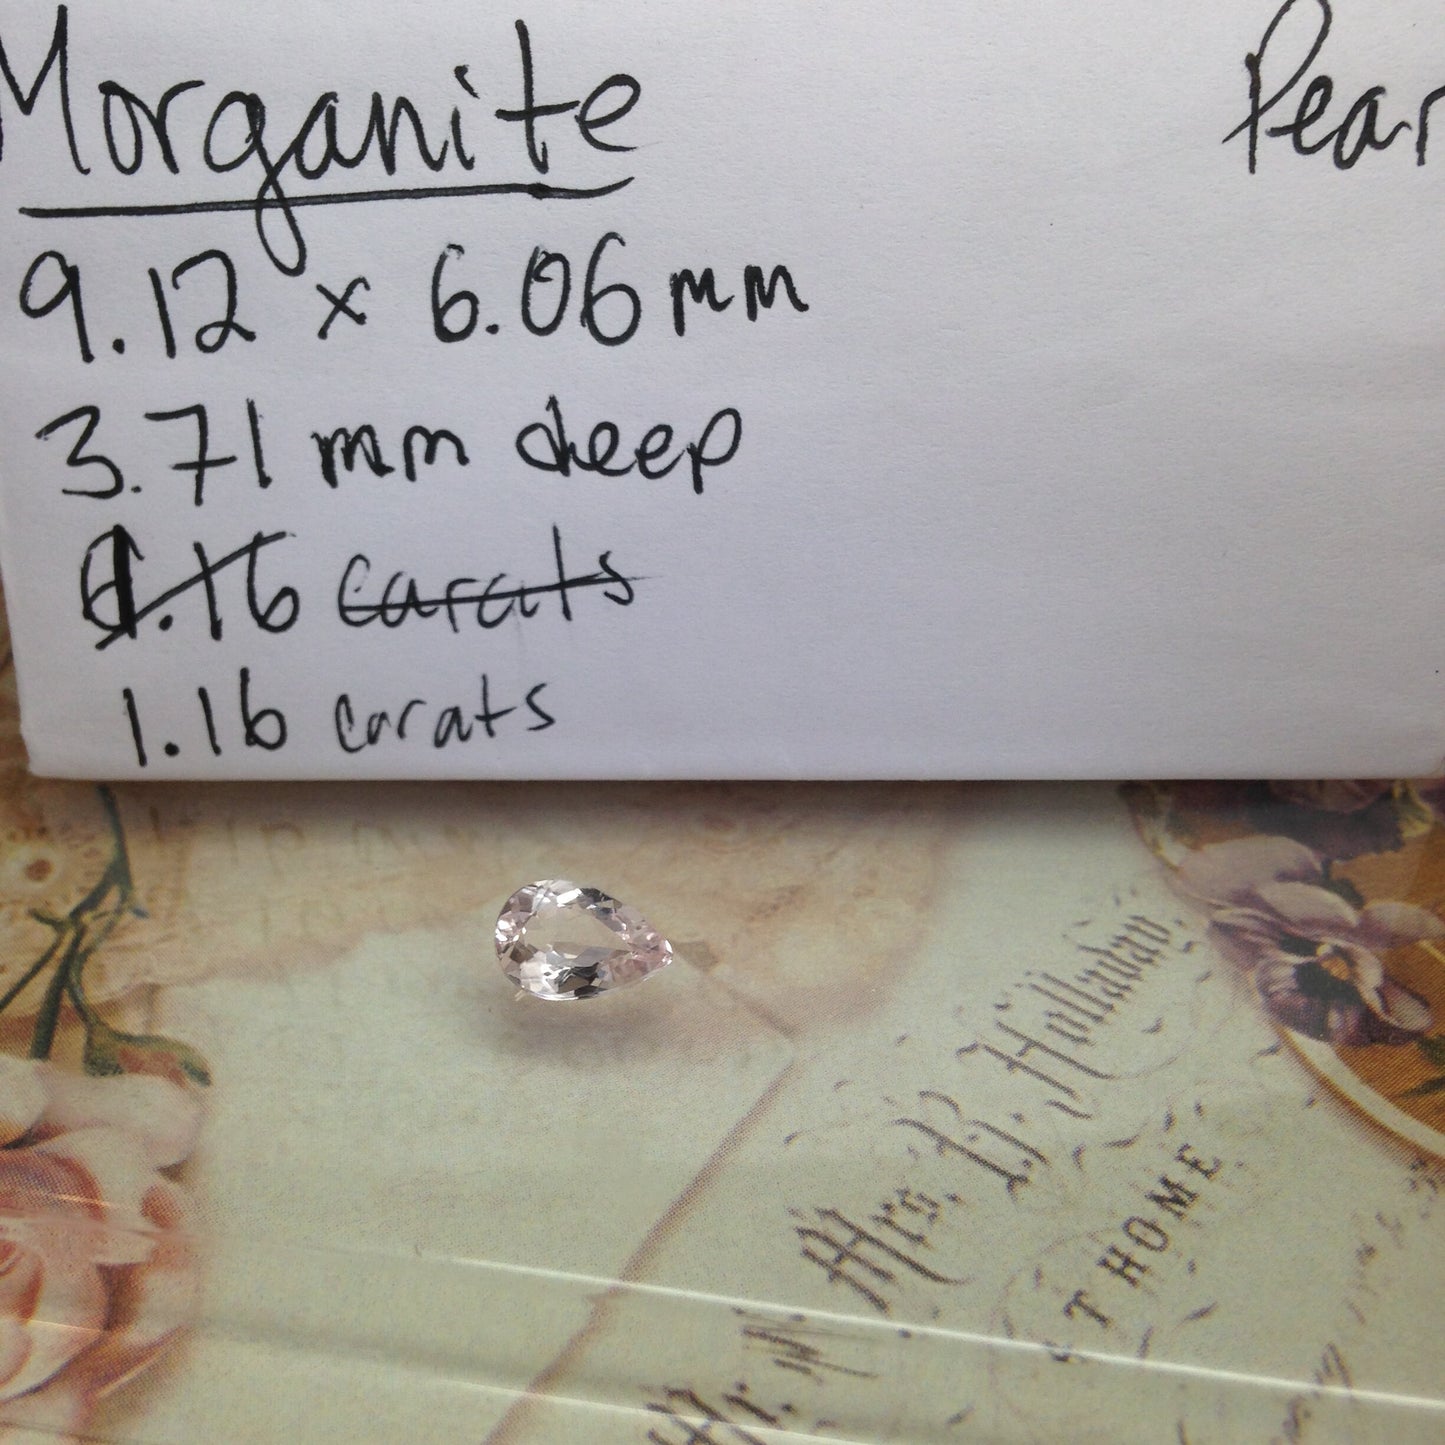 Morganite
Pear
9.12 x 6.06 mm
3.71 mm deep
1.16 carats
1.16 carats
Mrs. B. Holladay.
AT HOME
Mr. W.